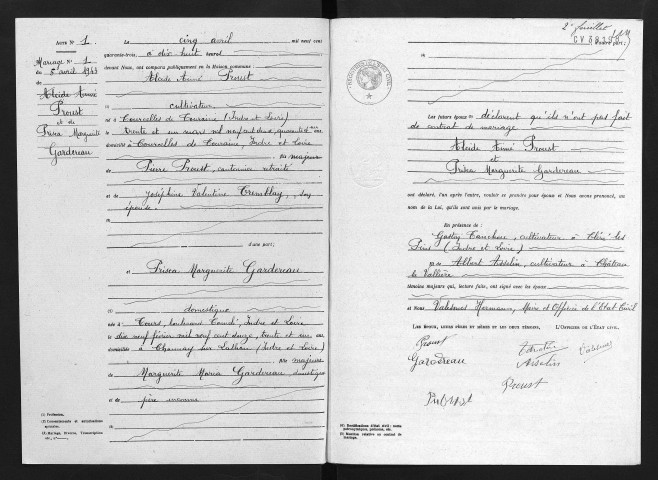 Acte N° 1.
Mariage N° 1
du 5 avril 1943
Alcide Aimé
Proust
et de
Prisca Marguerite
Gardereau
Le cinq avril mil neuf cent
quarante-trois, à dix huit heures
devant Nous, ont comparu publiquement en la Maison commune :
Alcide Aimé Proust
cultivateur
né à Courcelles de Touraine (Indre et Loire)
le trente et un mars mil neuf cent deux, quarante et un ans,
domicilié à Courcelles de Touraine, Indre et Loire
fils majeur
de Pierre Proust, cantonnier retraité
et de Joséphine Valentine Tremblay, son
épouse
d'une part;
et Prisca Marguerite Gardereau
domestique
née à Tours, Indre et Loire
le dix neuf février mil neuf cent douze, trente et un ans,
domiciliée à Channay sur Lathan (Indre et Loire)
fille majeure
de Marguerite Maria Gardereau domestique
et de père inconnu
(1) Profession.
(2) Consentements et autorisations
(3) Mariage, Divorce, Transcription
2e feuillet
d'autre part;
Les futurs époux déclarent qu'ils n'ont pas fait
de contrat de mariage
Alcide Aimé Proust
et
Prisca Marguerite Gardereau
ont déclaré, l'un après l'autre, vouloir se prendre pour époux et Nous avons prononcé, au
nom de la Loi, qu'ils sont unis par le mariage.
En présence de :
cultivateur à Cléré les
Pins (Indre et Loire)
et de Albert Asselin, cultivateur à Château
la Vallière
témoins majeurs qui, lecture faite, ont signé avec les époux
et Nous Valesnes Hermann, Maire et Officier de l'Etat Civil
Les époux, leurs pères et mères et les deux témoins, L'Officier de l'État civil,
Proust
Gardereau
Asselin
Proust